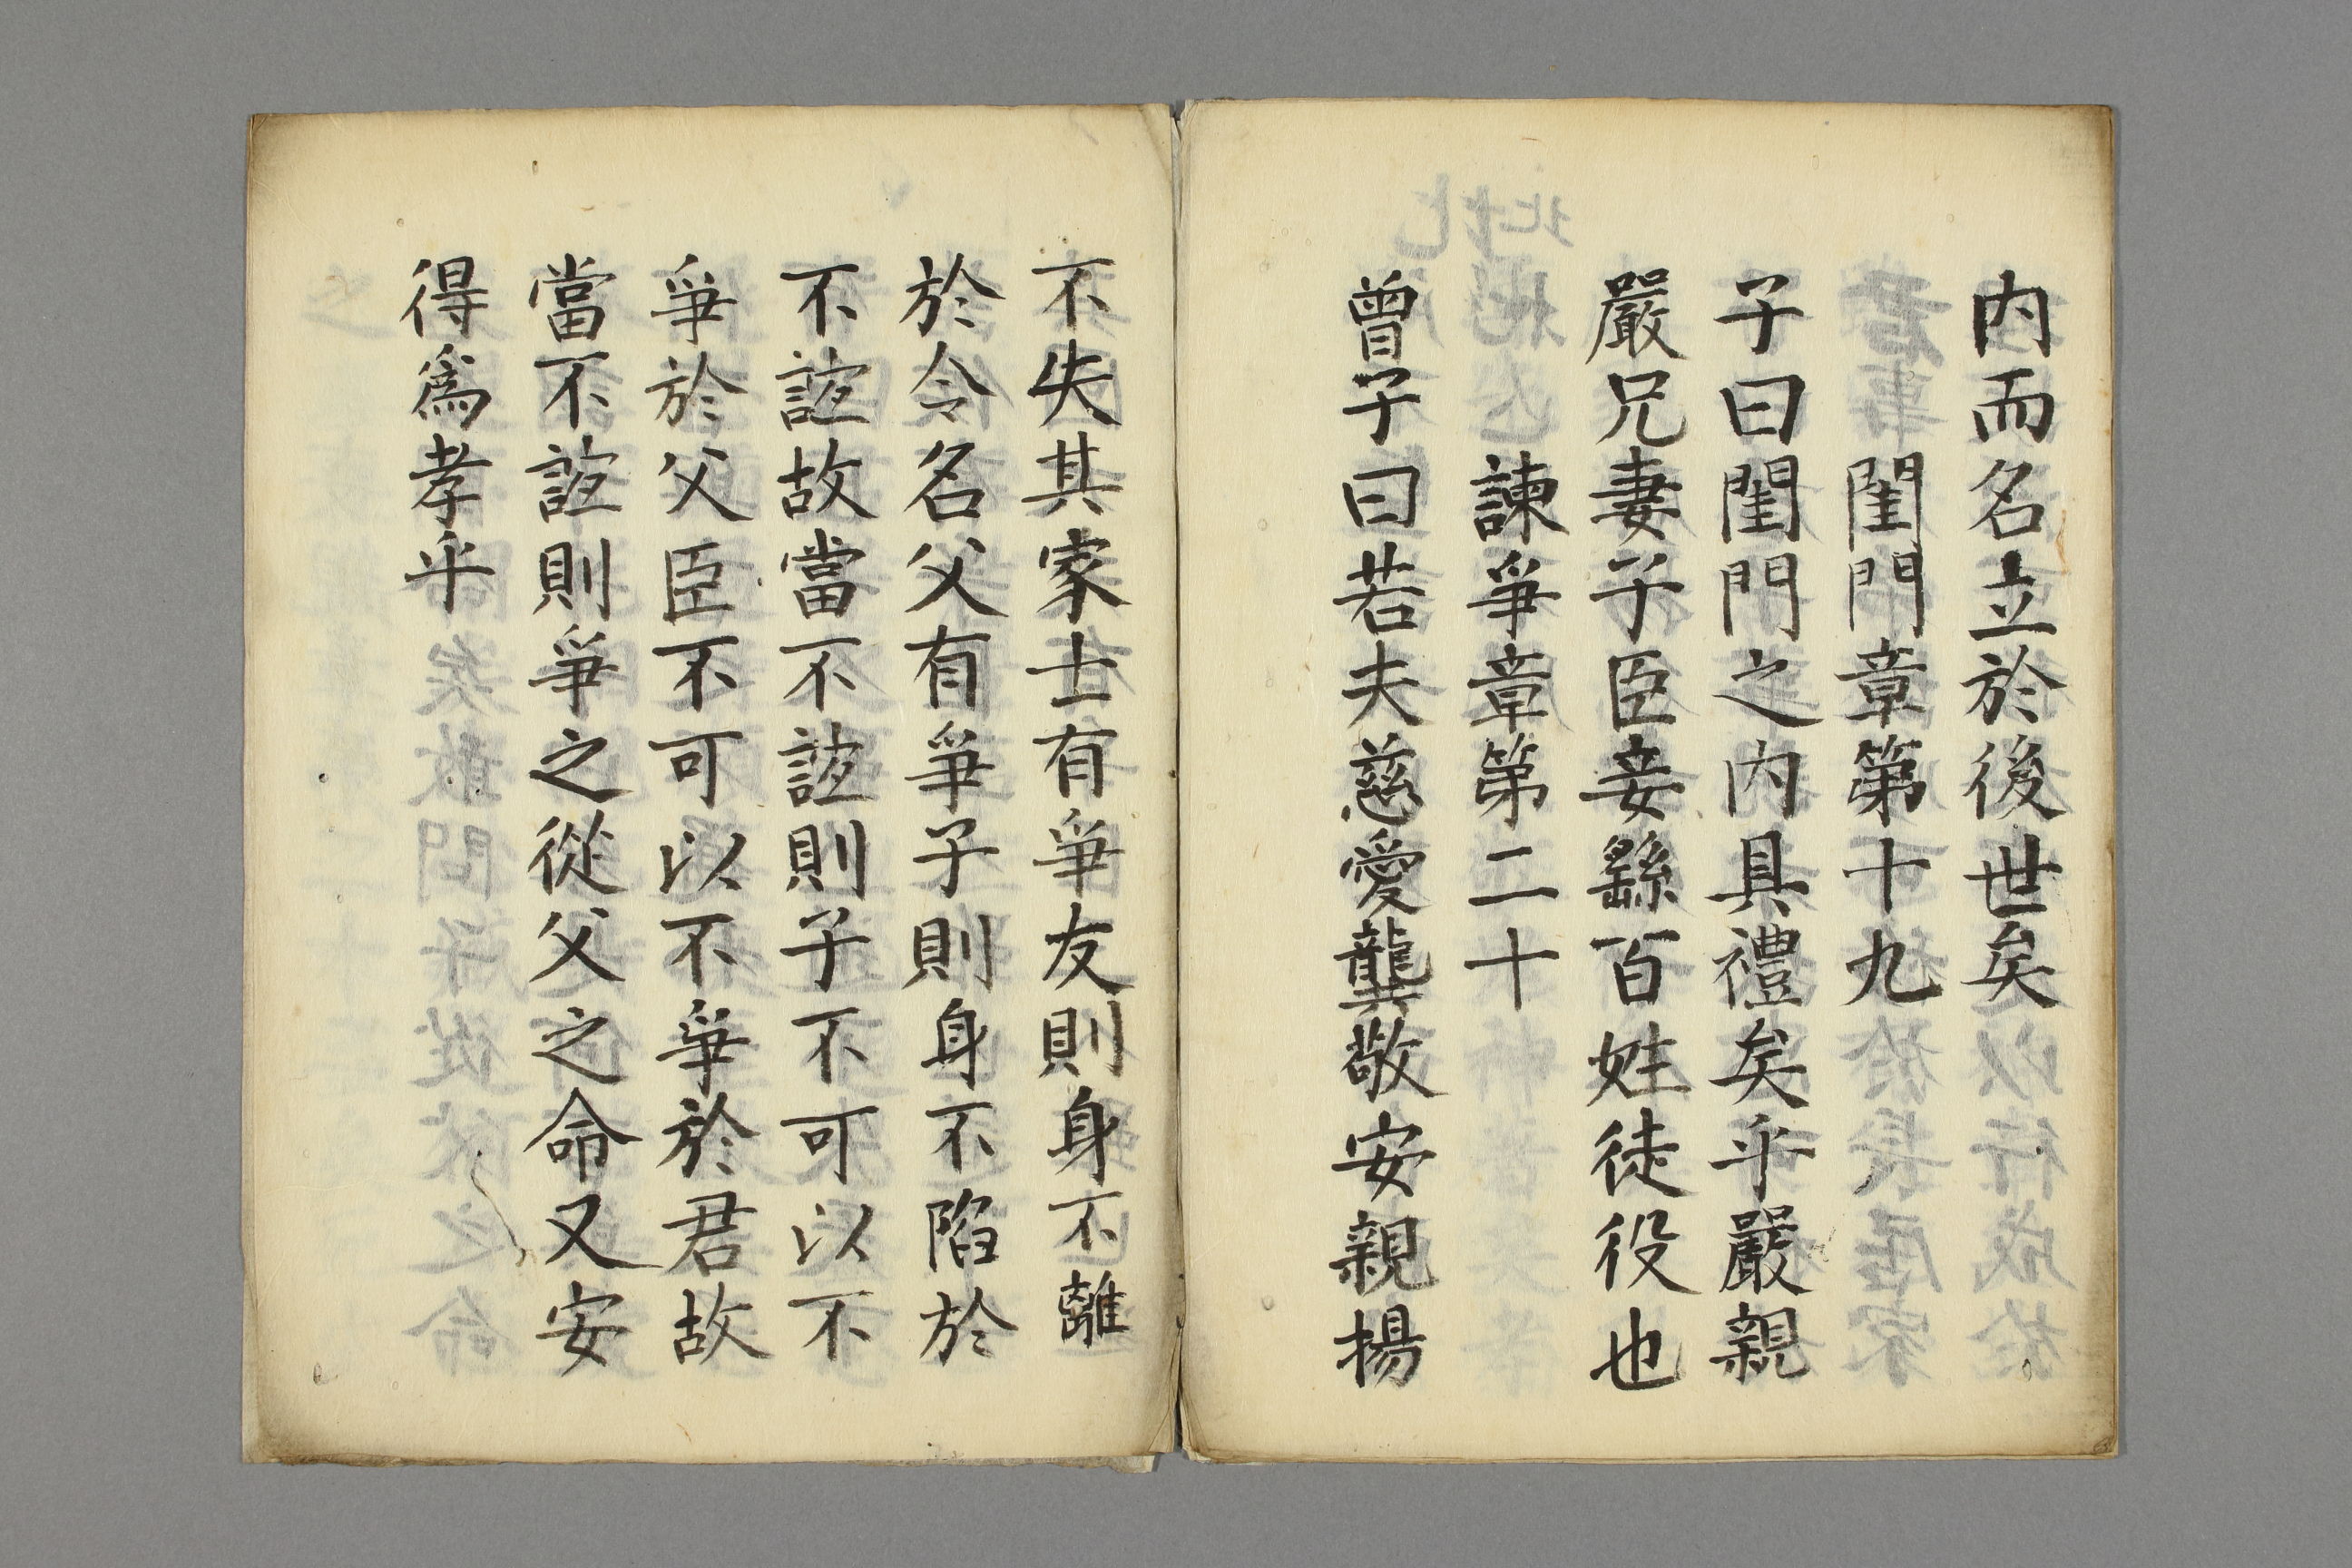 内而名立於後世矣
閨門章第十九
子曰閨門之内具禮矣乎嚴親
嚴兄妻子臣妾繇百姓徒役也
諫爭章第二十
曾子曰若夫慈愛龔敬安親揚
不失其家士有爭友則身不離
於令名父有爭子則身不陷於
不誼故當不誼則子不可以不
爭於父臣不可以不爭於君故
當不誼則爭之從父之命又安
得為孝乎